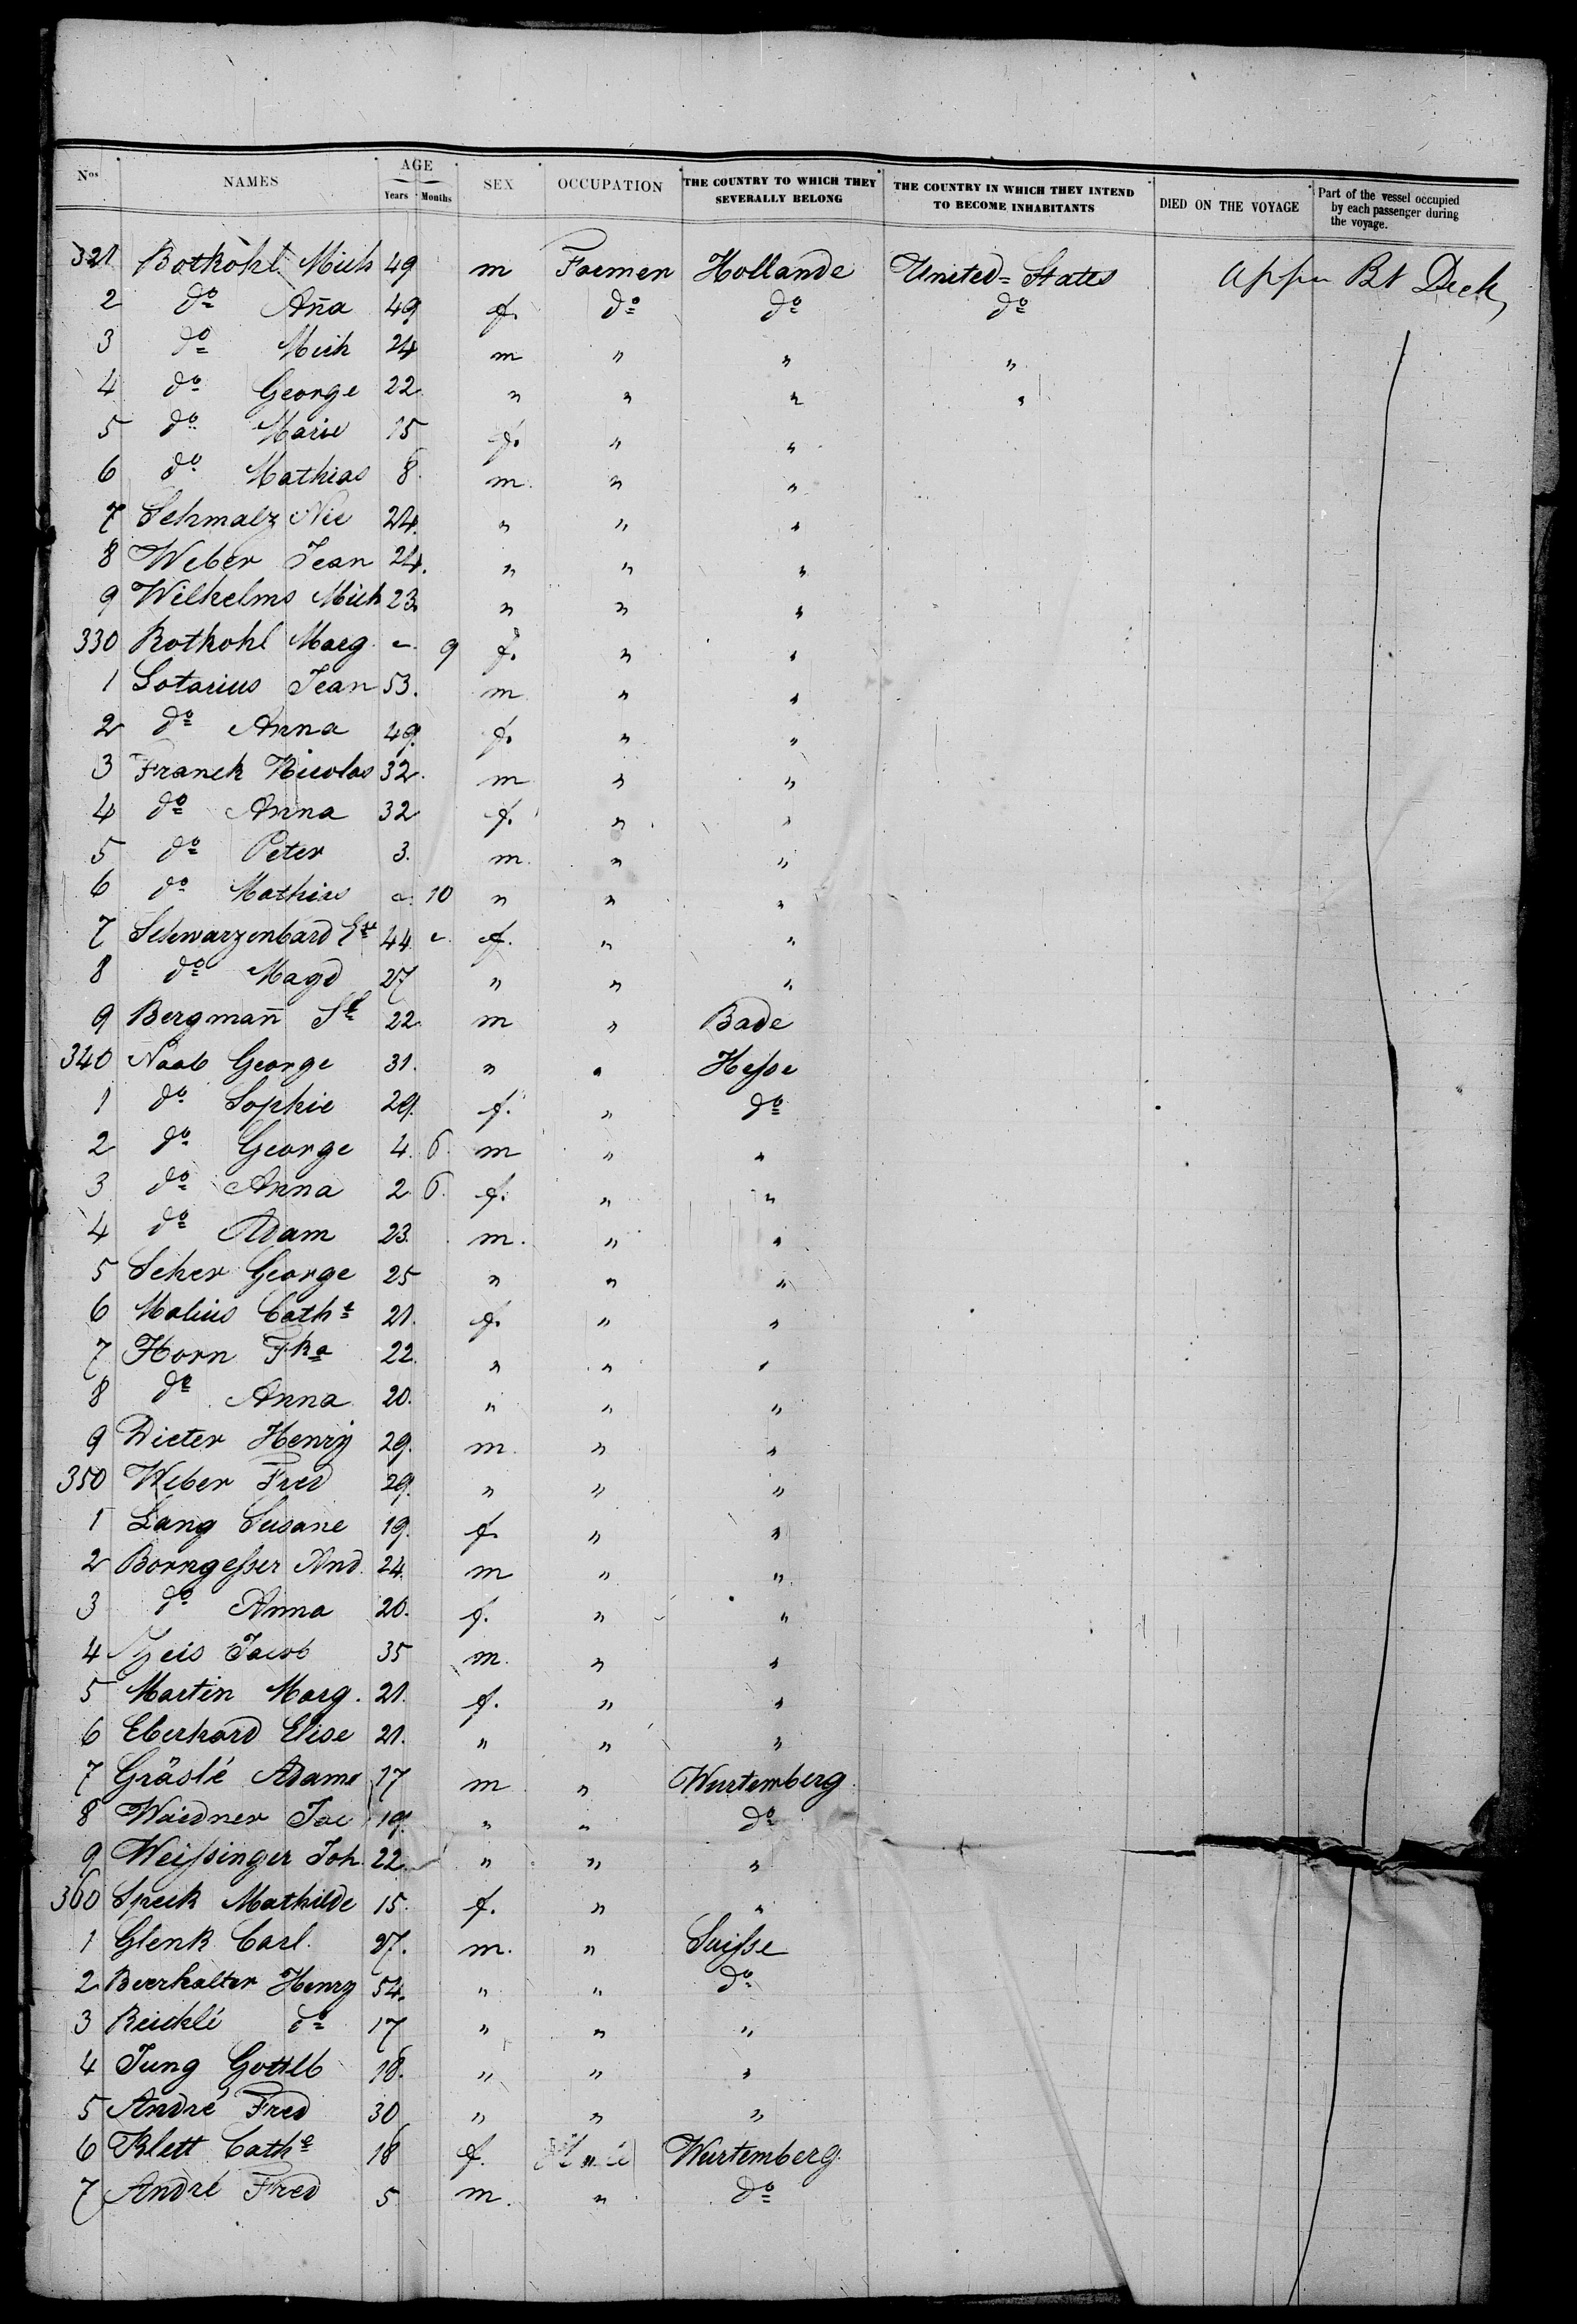 Nos NAMES AGE Years Months SEX OCCUPATION THE COUNTRY TO WHICH THEY SEVERALLY BELONG THE COUNTRY IN WHICH THEY INTEND TO BECOME INHABITANTS DIED ON THE VOYAGE Part of the vessel occupied by each passenger during the voyage.
321 Rotkohl Mich 49 m Farmer Hollande United=States Upper Bt Deck
2 do Aña 49 f. do do do
3 do Mich 24 m " " "
4 do George 22 " " " "
5 do Marie 15 f. " "
6 do Mathias 8. m. " "
7 Schmalz Nic 24. " " "
8 Weber Jean 24. " " "
9 Wilhelms Mich 23. " " "
330 Rotkohl Marg. 9 f. " "
1 Lotarius Jean 53. m " "
2 do Anna 49. f. " "
3 Franck Nicolas 32. m " "
4 do Anna 32 f. " "
5 do Peter 3. m. " "
6 do Mathias 10 " " "
7 Schwarzenbard 44 f. " "
8 do Magd 27 " " "
9 Bergmañ 22 m " Bade
340 Naab George 31. " " Hesse
1 do Sophie 29. f. " do
2 do George 4. 6. m " "
3 do Anna 2 6. f. " "
4 do Adam 23. m. " "
5 Scher George 25 " " "
6 Malius Cathe 21. f. " "
7 Horn Fka 22. " " "
8 do Anna 20. " " "
9 Dieter Henry 29. m. " "
350 Weber Fred 29. " " "
1 Lang Susane 19. f. " "
2 Borngesser And. 24. m " "
3 do Anna 20. f. " "
4 Zeis Jacob 35 m. " "
5 Martin Marg. 21. f. " "
6 Eberhard Elise 21. " " "
7 Gräslé Adame 17 m " Wurtemberg
8 Waidner Jac 19. " " do
9 Weissinger Joh. 22. " " "
360 Speck Mathilde 15. f. " "
1 Glenk Carl. 27. m. " Suisse
2 Beerhalter Henry 54. " " do
3 Reicklé do 17 " " "
4 Jung Gottlb 18. " " "
5 André Fred 30 " " "
6 Klett Cathe 18 f. Wurtemberg.
7 André Fred 5 m. " do